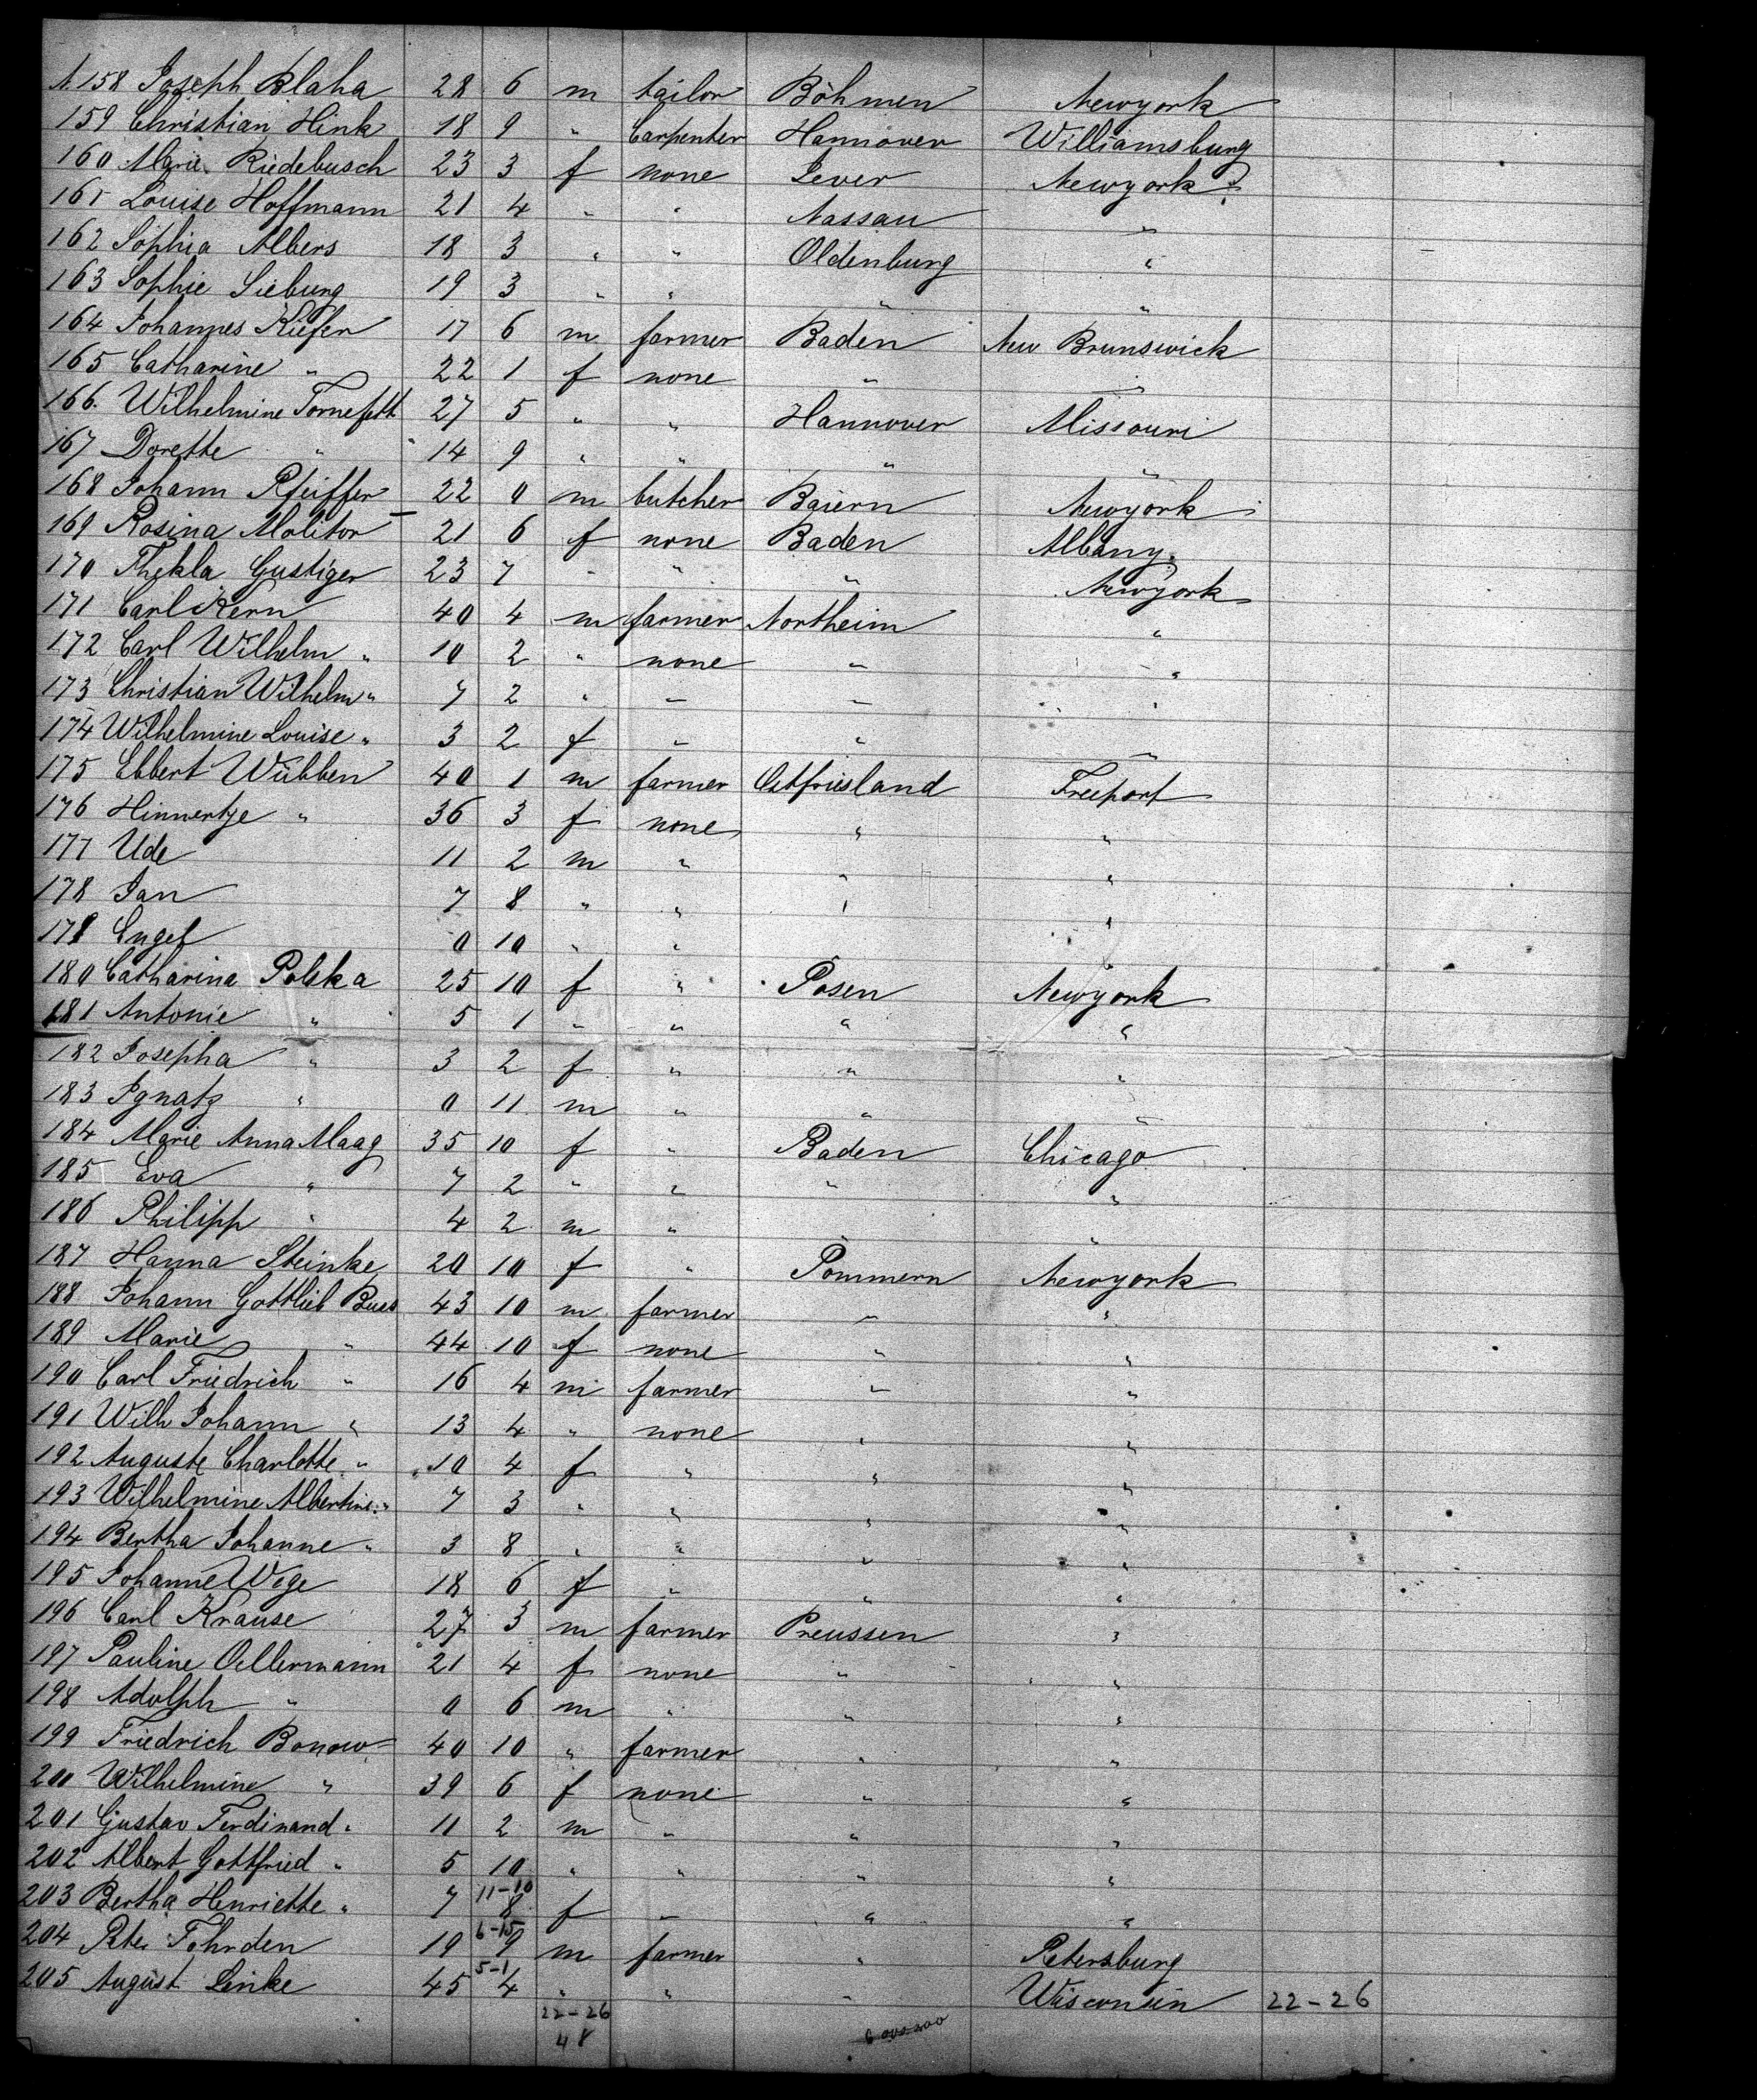 N. 158 Joseph Blaha 28 6 m tailor Böhmen Newyork
159 Christian Hink 18 9 " Carpenter Hannover Williamsburg
160 Marie Riedebusch 23 3 f none Jever Newyork
161 Louise Hoffmann 21 4 " " Nassau "
162 Sophia Albers 18 3 " " Oldenburg "
163 Sophie Siebung 19 3 " " " "
164 Johannes Kiefer 17 6 m farmer Baden New Brunswick
165 Catharine " 22 1 f none " "
166. Wilhelmine 27 5 " " Hannover Missouri
167 Dorette " 14 9 " " " "
168 Johann Pfeiffer 22 0 m butcher Baiern Newyork
169 Rosina Molitor 21 6 f none Baden Albany
170 Thekla Gustiger 23 7 " " " Newyork
171 Carl Kern 40 4 m farmer Northeim "
172 Carl Wilhelm " 10 2 " none " "
173 Christian Wilhelm " 7 2 " " " "
174 Wilhelmine Louise " 3 2 f " " "
175 Ebbert Wübben 40 1 m farmer Ostfriesland Freeport
176 Hinnertje " 36 3 f none " "
177 Ude 11 2 m " " "
178 Jan 7 8 " " " "
179 Engel 0 10 " " "
180 Catharina Polska 25 10 f " Posen Newyork
181 Antonie " 5 1 " " " "
182 Josepha " 3 2 f " " "
183 Ignatz " 0 11 m " " "
184 Marie Anna Maag 35 10 f " Baden Chicago
185 Eva " 7 2 " " " "
186 Philipp " 4 2 m " "
187 Hanna Steinke 20 10 f " Pommern Newyork
188 Johann Gottlieb Buss 43 10 m farmer " "
189 Marie " 44 10 f none " "
190 Carl Friedrich " 16 4 m farmer " "
191 Wilh Johann " 13 4 " none " "
192 Auguste Charlotte " 10 4 f " " "
193 Wilhelmine Albertine " 7 3 " " " "
194 Bertha Johanne " 3 8 " " " "
195 Johanne Wege 18 6 f " " "
196 Carl Krause 27 3 m farmer Preussen "
197 Pauline Oellermann 21 4 f none " "
198 Adolph " 0 6 m " " "
199 Friedrich Bonow 40 10 " farmer " "
200 Wilhelmine " 39 6 f none " "
201 Gustav Ferdinand " 11 2 m " " "
202 Albert Gottfried " 5 10 " " " "
11-10
203 Bertha Henriette " 7 8 f " " "
6-15
204 Peter Fohrden 19 9 m farmer " Petersburg
5-1
205 August Linke 45 4 " " " Wisconsin 22-26
22-26
48